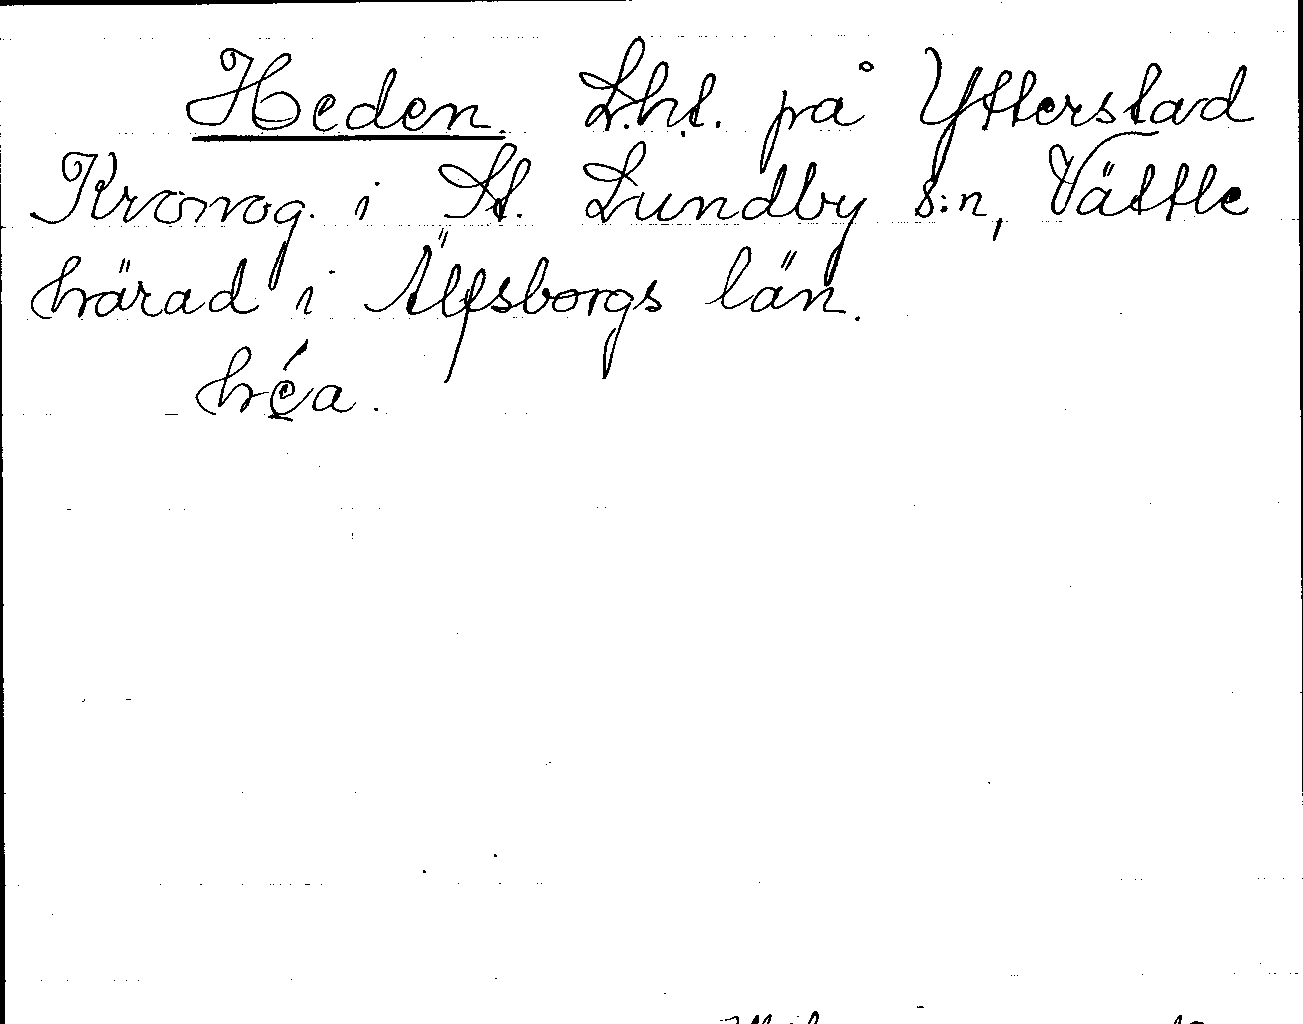 Heden. L.ht. på Ytterstad
Kronog. i St. Lundby s:n, Vättle
härad i Älfsborgs län.
héa.